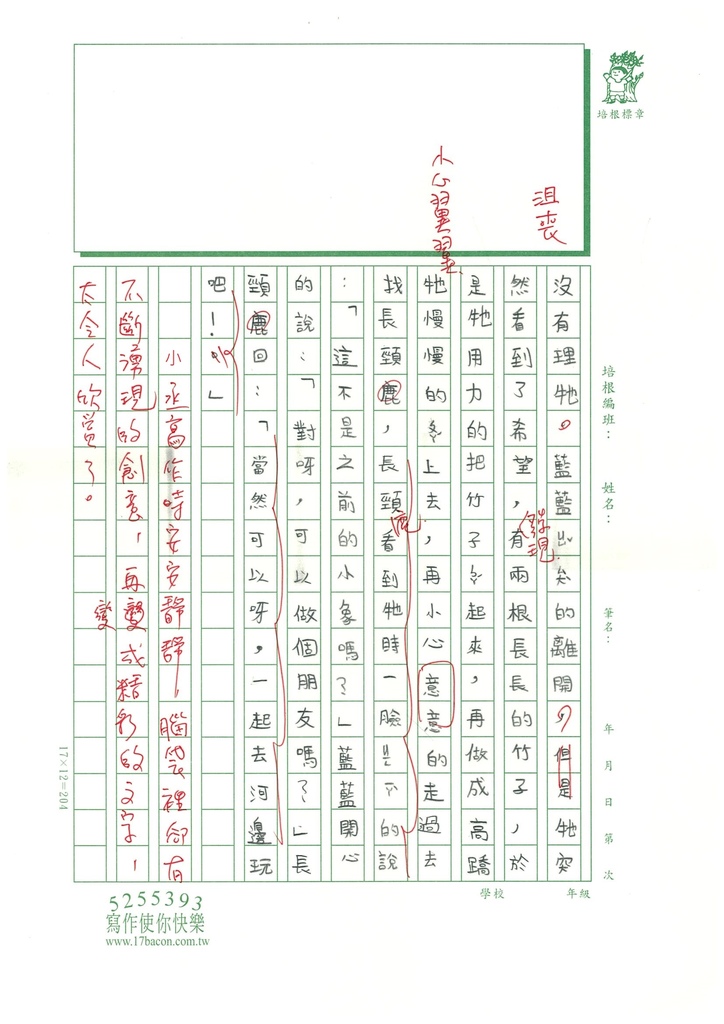 培根標章
沮喪
小心翼翼
培根編班：
姓名：
筆名：
年 月 日 第 次
沒有理牠。藍藍的離開，但是牠突
然看到了希望，有兩根長長的竹子，於
發現
是牠用力的把竹子起來，再做成高蹺
牠慢慢的上去，再小心意意的走過去
找長頸鹿，長頸看到牠時一臉的說
鹿
：「這不是之前的小象嗎？」藍藍開心
的說：「對呀，可以做個朋友嗎？」長
頸鹿回：「當然可以呀，一起去河邊玩
吧！」
小丞寫作時安安靜靜，腦袋裡卻有
不斷湧現的創意，再變成精彩的文字，
變
太令人欣賞了。
17×12=204
學校
年級
5255393
寫作使你快樂
www.17bacon.com.tw